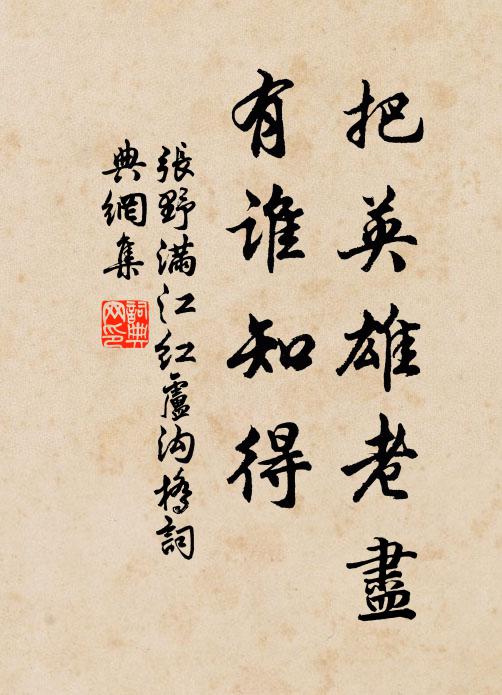 把英雄老盡
有誰知得
張野滿江红盧沟橋詞
典網集
詞典网印